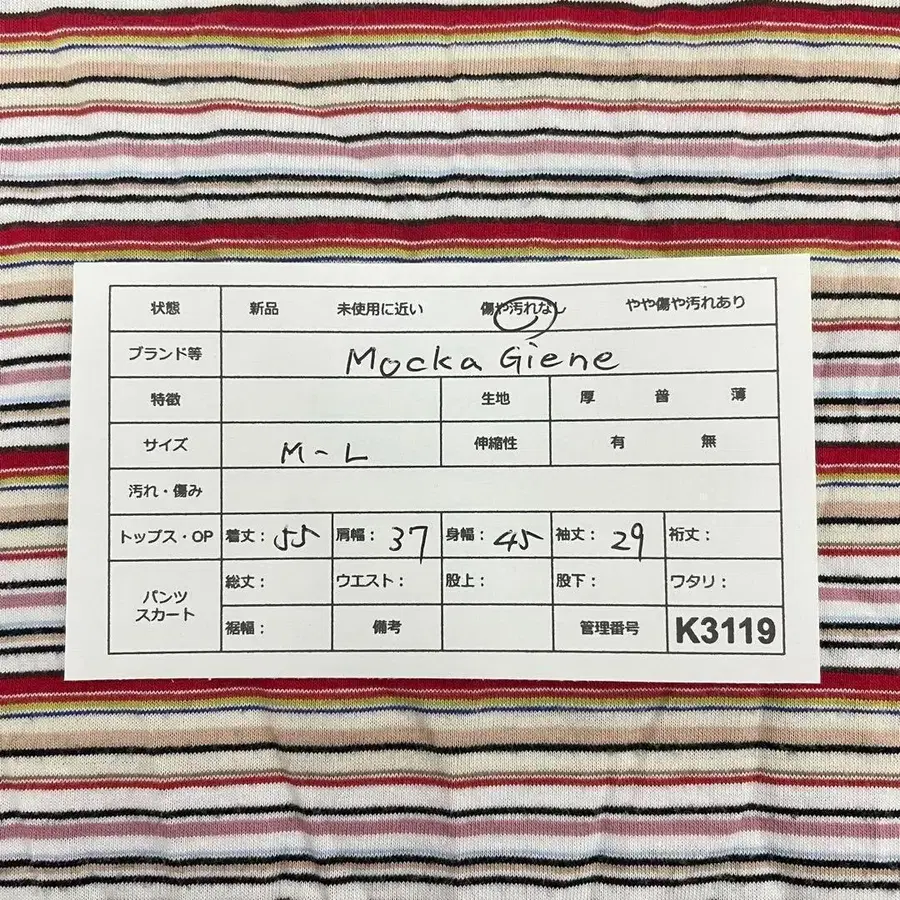 状態 新品 未使用に近い 傷や汚れなし やや傷や汚れあり
ブランド等 Mocka Giene
特徴 生地 厚 普 薄
サイズ M-L 伸縮性 有 無
汚れ・傷み
トップス・OP 着丈：55 肩幅：37 身幅：45 袖丈：29 裄丈：
パンツ スカート 総丈： ウエスト： 股上： 股下： ワタリ：
裾幅： 備考 管理番号 K3119